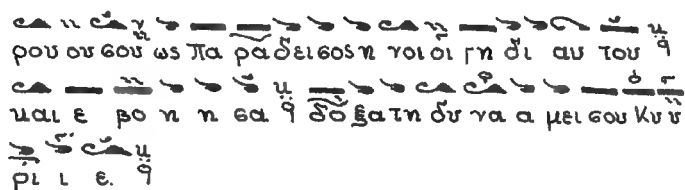 ρου ου σου ως πα ρα δει σος η νοι οι γη δι αυ του
και ε βο η η σα δο ξα τη δυ να α μει σου Κυ υ
ρι ι ε.